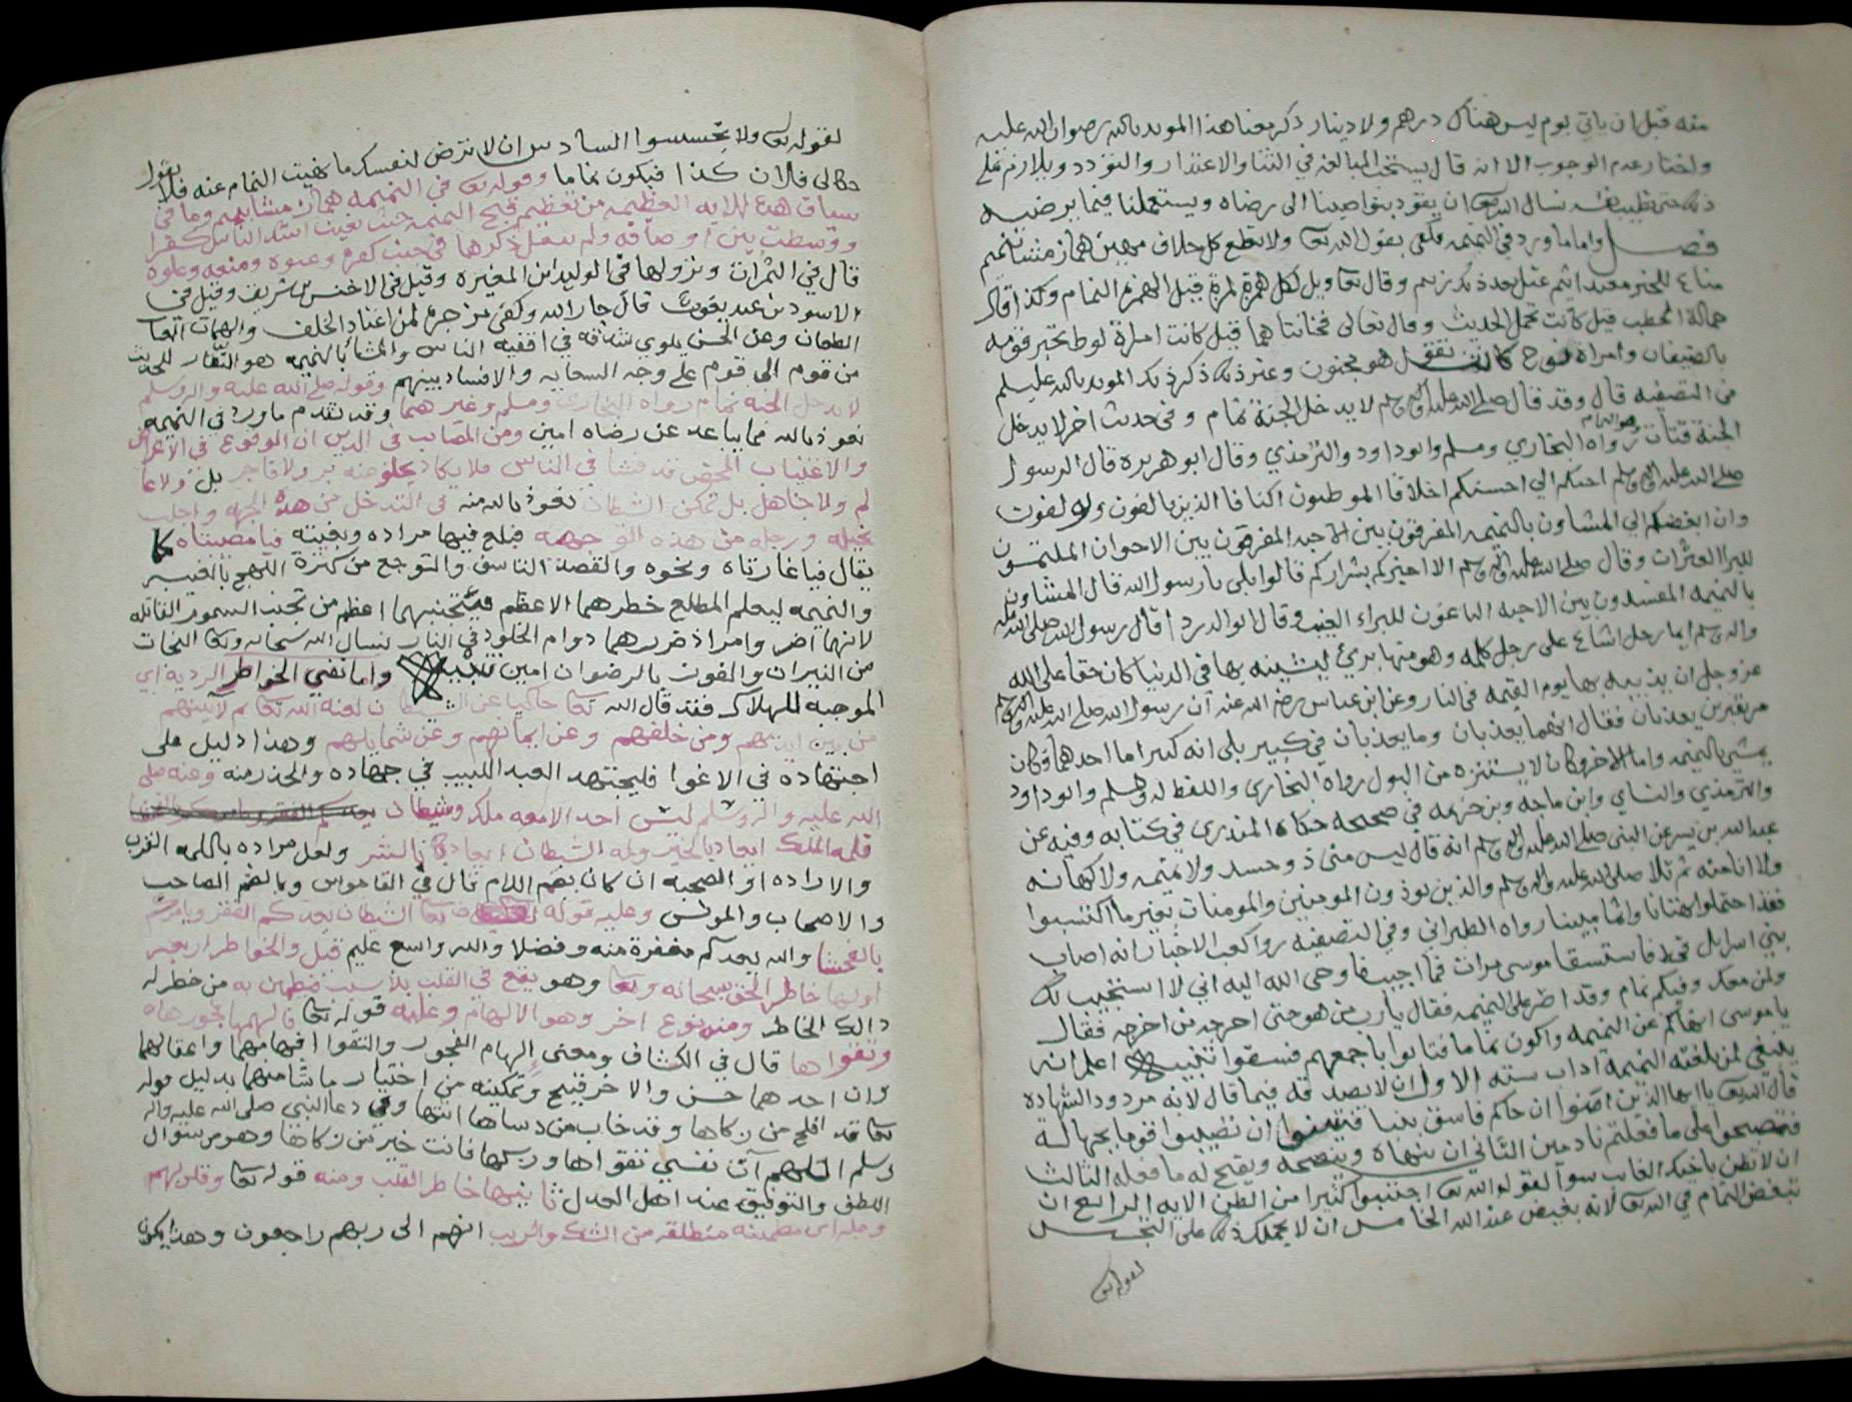 منه قبل ان ياتي يوم ليس هناك درهم ولا دينار ذكر معنا هذا المويد بالله رضوان الله عليه
واختار عدم الوجوب الا انه قال يستحب المبالغه في الثنا والاعتذار والتودد ويلازم علي
ذلك حتى تطيب نفسه نسال الله تعا ان يقود بنواصينا الى رضاه ويستعملنا فيما يرضيه
فصل واما ما ورد في النميمه فكفى بقول الله تعا ولا تطع كل حلاف مهين هماز مشا بنميم
مناع للخير معتد اثيم عتل بعد ذلك زنيم وقال تعا ويل لكل همزة لمزة قيل الهمزة النمام وكذا قال
حمالة الحطب قيل كانت تحمل الحديث وقال تعالى فخانتاهما قيل كانت امراة لوط تخبر قومه
بالضيفان وامراة نوح كانت تقول هو مجنون وعنر ذلك ذكر ذلك المويد بالله عليلم
في التصفيه قال وقد قال صلى الله عليه واله وسلم لا يدخل الجنة نمام وفي حديث اخر لا يدخل
الجنة قتات هو النمام رواه البخاري ومسلم وابو داود والترمذي وقال ابو هريره قال الرسول
صلى الله عليه واله وسلم احبكم الي احسنكم اخلاقا الموطئون اكنافا الذين يالفون ويولفون
وان ابغضكم الي المشاون بالنميمه المفرقون بين الاحبه المفرقون بين الاخوان الملتمسون
للبرا العثرات وقال صلى الله عليه واله وسلم الا اخبركم بشراركم قالوا بلى يا رسول الله قال المشاون
بالنميمه المفسدون بين الاحبه الباغون للبراء العيب وقال ابو الدردا قال رسول الله صلى الله عليه
واله وسلم ايما رجل اشاع على رجل كلمه وهو منها بريء ليشينه بها في الدنيا كان حقا على الله
عز وجل ان يذيبه بها يوم القيمه في النار وعن ابن عباس رضي الله عنه ان رسول الله صلى الله عليه واله وسلم
مر بقبرين يعذبان فقال انهما يعذبان وما يعذبان في كبير بلى انه كبير اما احدهما فكان
يمشي بالنميمه واما الاخر فكان لا يستنزه من البول رواه البخاري واللفظ له ومسلم وابو داود
والترمذي والنساي وابن ماجه وبن خزيمه في صحيحه حكاه المنذري في كتابه وفيه عن
عبدالله بن بسر عن النبي صلى الله عليه واله وسلم انه قال ليس مني ذو حسد ولا نميمه ولا كهانه
ولا انا منه ثم تلا صلى الله عليه واله وسلم والذين يوذون المومنين والمومنات بغير ما اكتسبوا
فقد احتملوا بهتانا واثما مبينا رواه الطبراني وفي التصفيه روا كعب الاخبار انه اصاب
بني اسرايل قحط فاستسقا موسى مرات فما اجيب فاوحى الله اليه اني لا استجيب لك
ولمن معك وفيكم نمام وقد اصر على النميمه فقال يا رب من هو حتى اخرجه من اخرجه فقال
يا موسى انهاكم عن النميمه واكون نماما فتابوا باجمعهم فسقوا تنبيه اعلم انه
ينبغي لمن بلغته النميمة اداب سته الاول ان لا يصدقه فيما قال لانه مردود الشهاده
قال الله تعا يا ايها الذين امنوا ان جاكم فاسق بنبا فتبينوا ان تصيبوا قوما بجهالة
فتصبحوا على ما فعلتم نادمين الثاني ان ينهاه وينصحه ويقبح له ما فعله الثالث
ان لا تظن باخيك الغايب سوآ لقوله الله تعا اجتنبوا كثيرا من الظن الايه الرابع ان
تبغض النمام في الله تعا لانه بغيض عند الله الخامس ان لا يحملك ذلك على التجسس
لقوله تعا
لقوله تعا ولا تجسسوا السادس ان لا ترض لنفسك ما نهيت النمام عنه فلا تقول
حكا لي فلان كذا فيكون نماما وقوله تعا في النميمه هماز مشا بنميم وما في
سياق هذه الايه العظيمه من تعظيم قبح النميمه حيث نعيت اشد الناس كفرا
ووسطت بين اوصافه ولم يغفل ذكرها في جنب كفره وعتوه ومنعه وعلوه
قال في الثمرات ونزولها في الوليد ابن المغيره وقيل في الاخنس بن شريف وقيل في
الاسود بن عبد يغوث قال جار الله وكفى من جرم لمن اعتاد الخلف والهماز العياب
الطعان وعن الحسن يلوي شدقه في اقفيه الناس والمشا بالنميمه هو النقال للحديث
من قوم الى قوم على وجه السعايه والافساد بينهم وقوله صلى الله عليه واله وسلم
لا يدخل الجنه نمام رواه البخاري ومسلم وغيرهما وقد تقدم ما ورد في النميمه
نعوذ بالله مما يباعد عن رضاه امين ومن المصايب في الدين ان الوقوع في الاعراض
والاغتياب المحض قد فشا في الناس فلا يكاد يخلو منه بر ولا فاجر بل ولا عا
لم ولا جاهل بل تمكن الشيطان نعوذ بالله منه في التدخل من هذه الجهه واجلب
بخيله ورجله من هذه الوجهه فبلغ فيها مراده وبغيته فيا مصيبتاه كما
يقال فيا غارتاه ونحوه والقصد التاسف والتوجع من كثرة اللهج بالغيبه
والنميمه ليعلم المطلع خطرهما الاعظم فيتجنبهما اعظم من تجنب السموم القاتله
لانهما اضر وامر اذ ضررهما دوام الخلود في النار نسال الله سبحانه وتعا النجات
من النيران والفوز بالرضوان امين تنبيه واما نفي الخواطر الرديه اي
الموجبه للهلاك فقد قال الله تعا حاكيا عن الشيطان لعنه الله تعا ثم لآتينهم
من بين ايديهم ومن خلفهم وعن ايمانهم وعن شمايلهم وهذا دليل على
اجتهاده في الاغوا فليجتهد العبد اللبيب في جهاده والحذر منه وعنه صلى
الله عليه واله وسلم ليس احد الا معه ملك وشيطان
فلمه الملك ايعاد بالخير ولمه الشيطان ايعاد بالشر ولعل مراده باللمه القرب
والاراده او الصحبه ان كان بضم اللام قال في القاموس وبالضم الصاحب
والاصحاب والمونس وعليه قوله تعا الشيطان يعدكم الفقر ويامركم
بالفحشا والله يعدكم مغفرة منه وفضلا والله واسع عليم قيل والخواطر اربعه
اولها خاطر الحق سبحانه وتعا وهو يقع في القلب بلا سبب فيطمئن به من خطر له
ذالك الخاطر ومنه نوع اخر وهو الالهام وعليه قوله تعا فالهمها فجورها
وتقواها قال في الكشاف ومعنى الهام الفجور والتقوا افهامهما واعقالهما
وان احدهما حسن والاخر قبيح وتمكينه من اختيار ما شا منهما بدليل قوله
تعا قد افلح من زكاها وقد خاب من دساها انتها وفي دعا النبي صلى الله عليه واله
وسلم اللهم آت نفسي تقواها وزكها فانت خير من زكاها وهو من سوال
اللطف والتوفيق عند اهل العدل ثانيها خاطر القلب ومنه قوله تعا وقلوبهم
وجله اي مطمينه منطلقه من الشك والريب انهم الى ربهم راجعون وهذا يكون